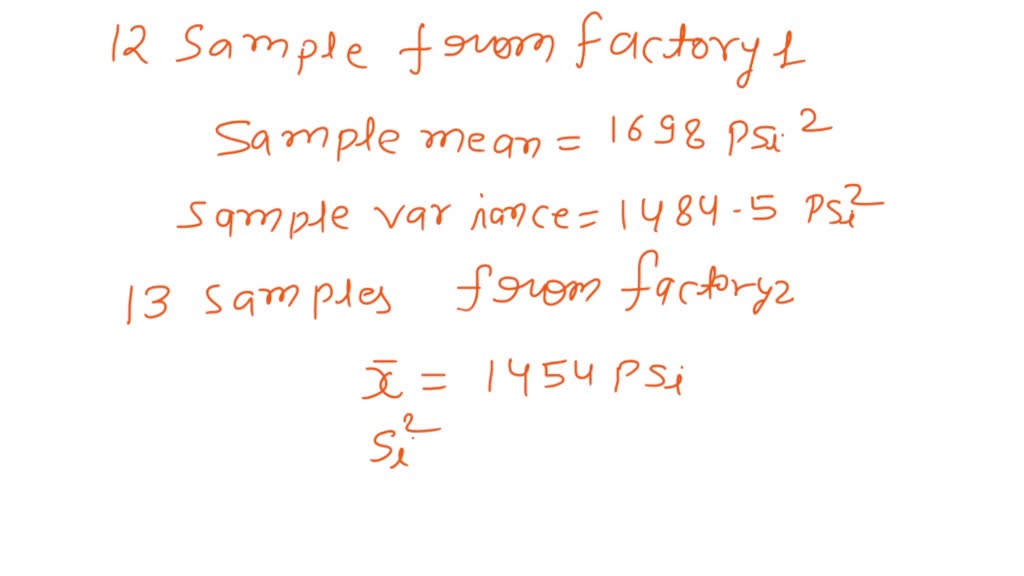 12 Sample from factory 1
Sample mean = 1698 Psi²
Sample variance = 1484.5 Psi²
13 samples from factory2
x̄ = 1454 PSi
Si²